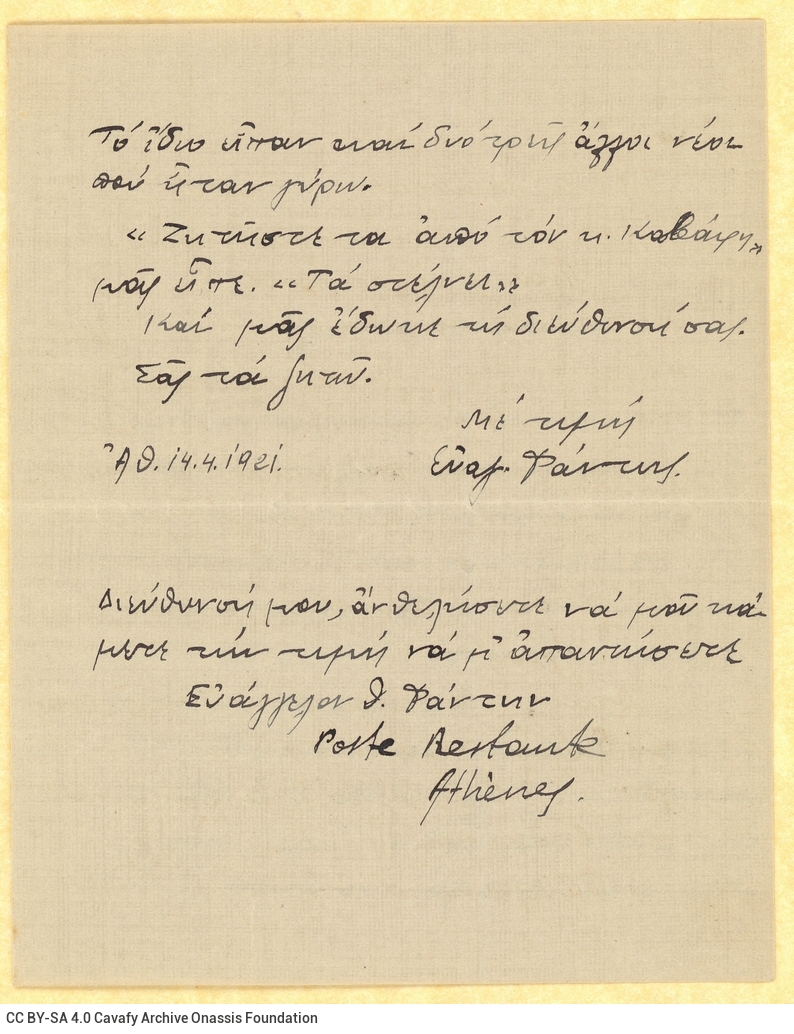 Τό ἴδιο εἶπαν καί δυό τρεῖς ἄλλοι νέοι
πού ἦταν γύρω.
« Ζητῆστε τα ἀπό τόν κ. Καβάφη »
μᾶς εἶπε. «Τά στέλνει»
Καί μᾶς ἔδωκε τή διεύθυνσή σας.
Σᾶς τά ζητῶ.
Μέ τιμή
Ἀθ. 14.4.1921.
Εὐαγ. Φάντης.
Διεύθυνσή μου, ἄν θελήσετε νά μοῦ κά-
μετε τήν τιμή νά μ' ἀπαντήσετε
Εὐάγγελον Θ. Φάντην
Poste Restante
Athènes.
CC BY-SA 4.0 Cavafy Archive Onassis Foundation